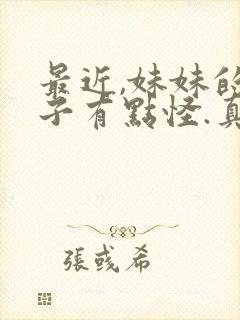 最近,妹妹的
子有點怪.真
張彧希